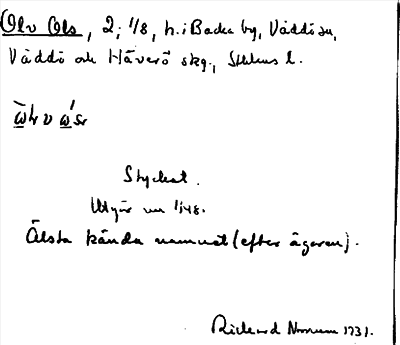 Olv Ols, 2; 1/8, h. i Backa by, Väddö sn,
Väddö och Häverö skg., Sthlms l.
Styckat.
Utgör nu 1/48.
Älsta kända namnet (efter ägaren).
Richard Norman 1731.